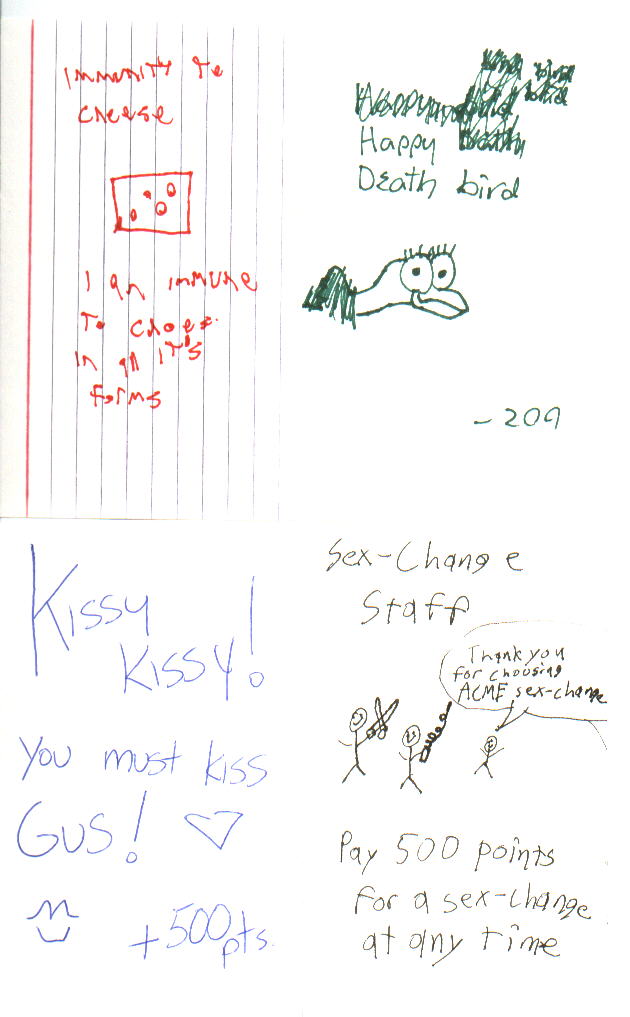 Immunity to
cheese
I an immune
To cheese
in all it's
forms
Happy
Death bird
- 209
Kissy
Kissy!
You must kiss
Gus!
+500 pts.
Sex-Change
Staff
Thank you
for choosing
ACME sex-change
Pay 500 points
for a sex-change
at any time